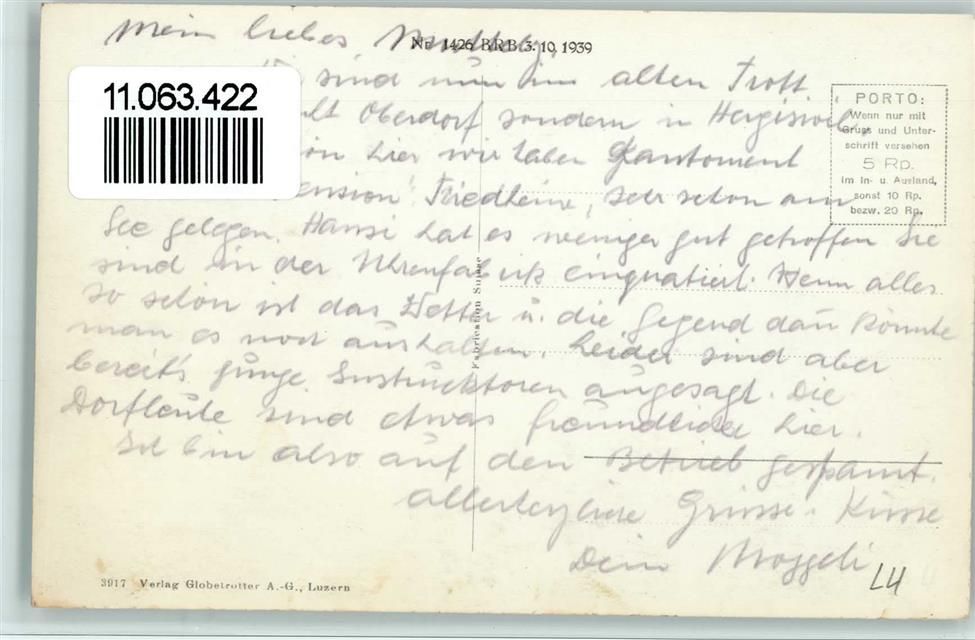 Mein liebes
Nr. 1426 BRB. 3. 10. 1939
sind nun im alten Trott
11.063.422
Oberdorf sondern in Hergiswil
hier wir haben Kantonment
ension Friedheim, sehr schön am
See gelegen. Hansi hat es weniger gut getroffen Sie
sind in der Uhrenfabrik einquatiert. Wenn alles
so schön ist das Wetter u. die Gegend dañ könnte
man es noch aushalten. Leider sind aber
bereits junge Instrucktoren angesagt. Die
Dorfleute sind etwas freundlicher hier.
Ich bin also auf den Betrieb gespannt.
Allerherzliche Grüsse u. Küsse
Dein
LU
PORTO:
Wenn nur mit
Gruss und Unter-
schrift versehen
5 Rp.
im In- u. Ausland,
sonst 10 Rp.
bezw. 20 Rp.
Fabrication Suisse
3917 Verlag Globetrotter A.-G., Luzern